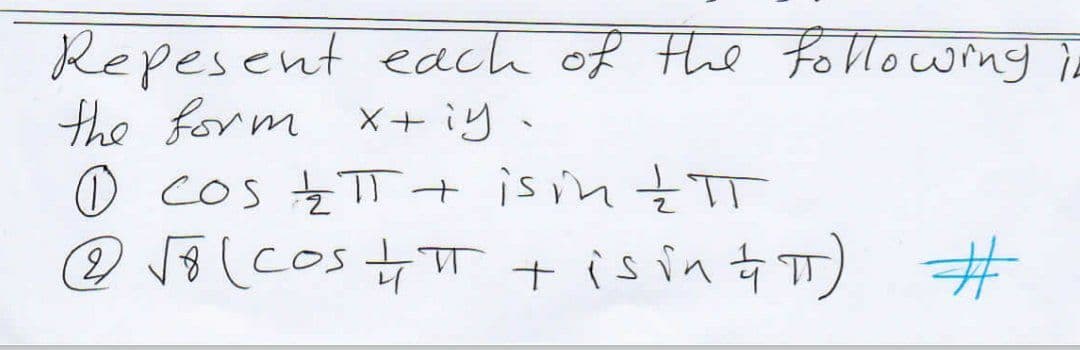 Repesent each of the following in
the form x + iy.
① cos ½ π + isin ½ π
② √8 (cos ¼ π + isin ¼ π) #